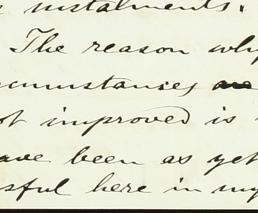 instalments.
The reason why
cumstances
ot improved is
ave been as yet
ssful here in my